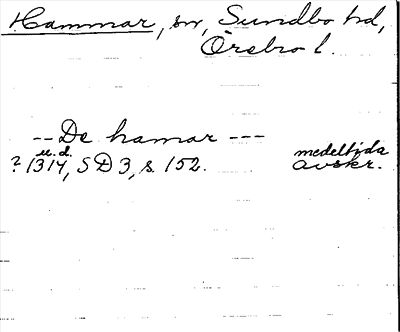 Hammar, sn, Sundbo hd,
Örebro l.
-- De hamar ---
u.d.
? 1314, SD 3, s. 152.
medeltida
avskr.